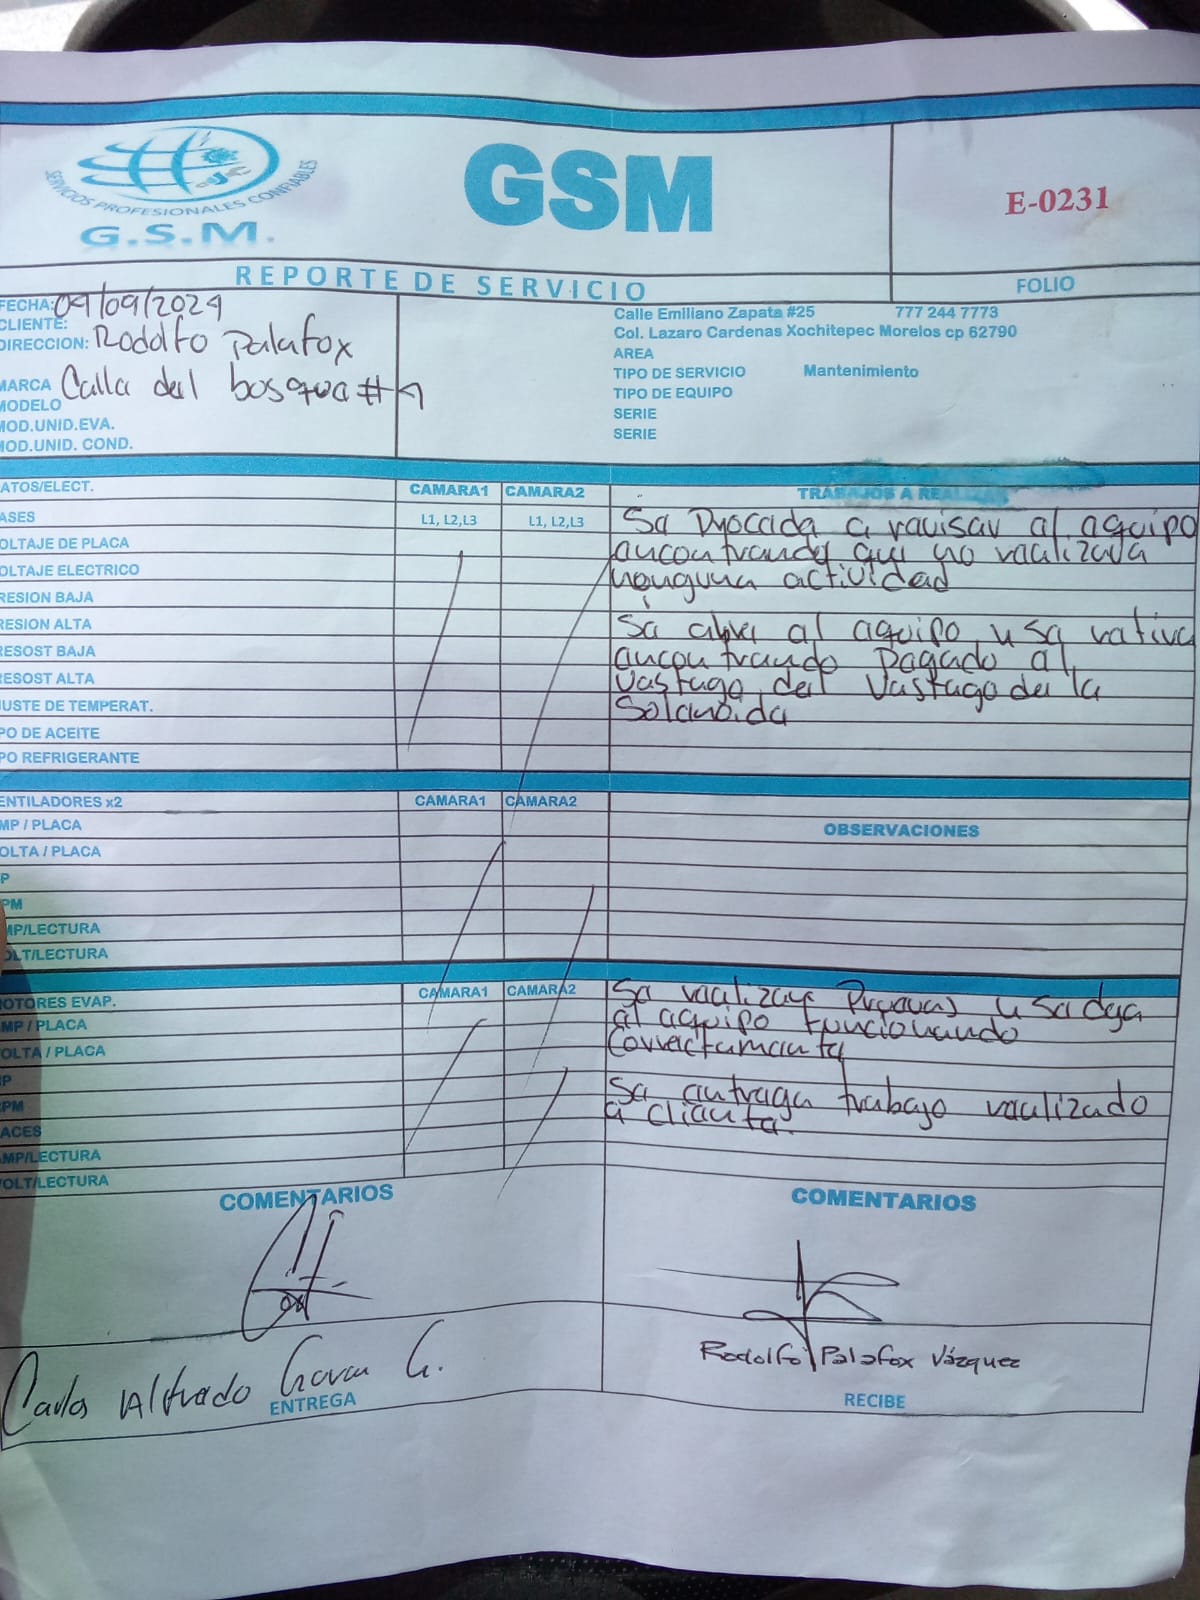 SERVICIOS PROFESIONALES CONFIABLES
G.S.M.
GSM
E-0231
REPORTE DE SERVICIO
FOLIO
FECHA: 09/09/2024
CLIENTE:
DIRECCION: Rodolfo Palafox
MARCA Calla del bosqua #
MODELO
MOD.UNID.EVA.
MOD.UNID. COND.
Calle Emiliano Zapata #25 777 244 7773
Col. Lazaro Cardenas Xochitepec Morelos cp 62790
AREA
TIPO DE SERVICIO Mantenimiento
TIPO DE EQUIPO
SERIE
SERIE
ATOS/ELECT. CAMARA1 CAMARA2 TRABAJOS A REALIZAR
ASES L1, L2,L3 L1, L2,L3 Sa Procada a ravisar al aquipo
OLTAJE DE PLACA ancontrando qua no raalizara
OLTAJE ELECTRICO actividad
RESION BAJA
RESION ALTA Sa abra al aquipo y sa ratira
RESOST BAJA ancontrando Pagado al
RESOST ALTA Vastago dal Vastago de la
JUSTE DE TEMPERAT. Solanoida
PO DE ACEITE
PO REFRIGERANTE
ENTILADORES x2 CAMARA1 CAMARA2
MP / PLACA OBSERVACIONES
OLTA / PLACA
P
PM
MP/LECTURA
OLT/LECTURA
OTORES EVAP. CAMARA1 CAMARA2 Sa raalizan Pruavas y sa daja
MP / PLACA al aquipo funcionando
OLTA / PLACA Corractamanta
P
PM Sa antraga trabajo raalizado
ACES a clianta.
AMP/LECTURA
VOLT/LECTURA
COMENTARIOS COMENTARIOS
Carlos Alfredo G. Rodolfo Palafox Vázquez
ENTREGA RECIBE